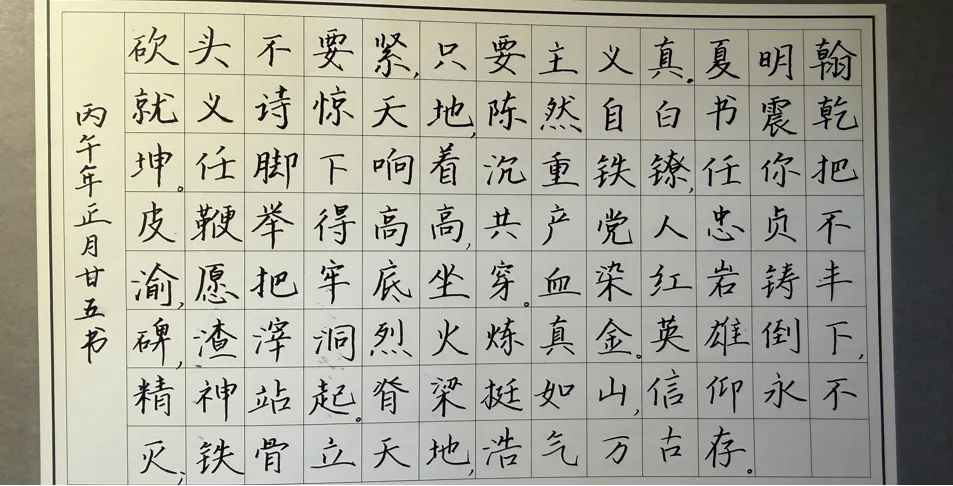 砍头不要紧,只要主义真。夏明翰
就义诗惊天地,陈然自白书震乾
坤。任脚下响着沉重铁镣,任你把
皮鞭举得高高,共产党人忠贞不
渝,愿把牢底坐穿。血染红岩铸丰
碑,渣滓洞烈火炼真金。英雄倒下,
精神站起。脊梁挺如山,信仰永不
灭,铁骨立天地,浩气万古存。
丙午年正月廿五书